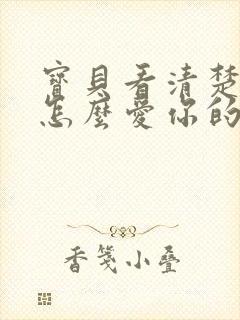 寶貝看清楚
怎麼愛你的
香箋小疊